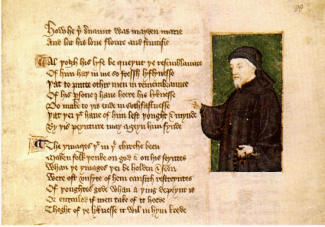 How he þi seruaunt was mayden marie
And lat his loue floure and fructifie
Al þogh his lyfe be queynt þe resemblaunce
Of him haþ in me so fressh lyflynesse
Þat to putte othir men in remembraunce
Of his persone I haue heere his lyknesse
Do make to þis ende in sothfastnesse
Þat þei þt haue of him lest þought & mynde
By þis peynture may ageyn him fynde
The ymages þt in þe chirche been
Maken folk þenke on god & on his seyntes
Whan þe ymages þei be holden & seen
Were oft vnsyte of hem causith restreyntes
Of þoughtes gode whan a þing depeynt is
Or entailed if men take of it heede
Thoght of þe lyknesse it wil in hym brede